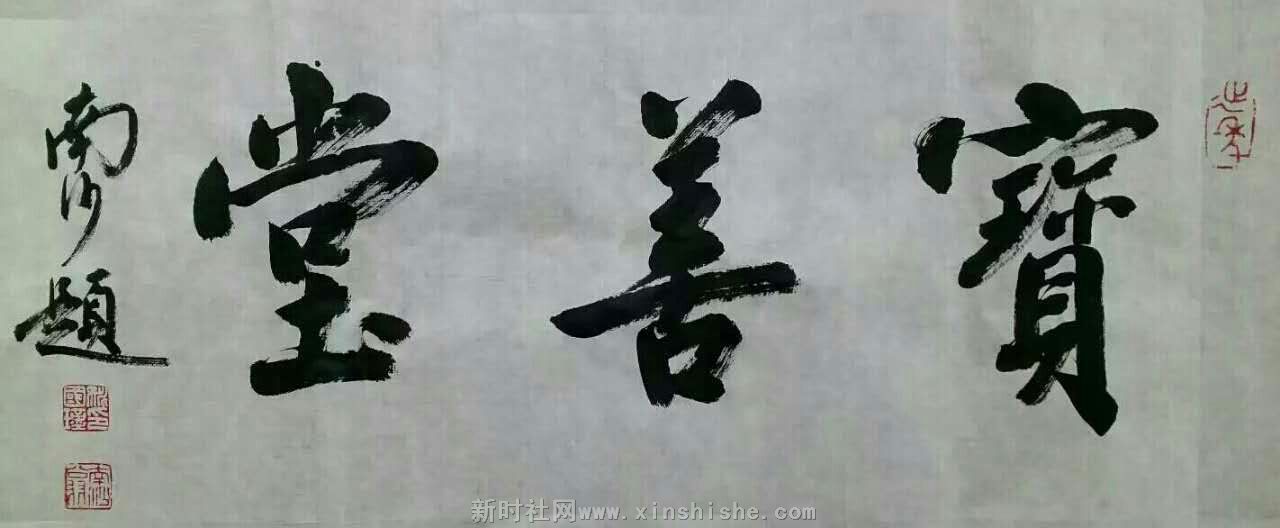 寶善堂
南州題
新时社网www.xinshishe.com